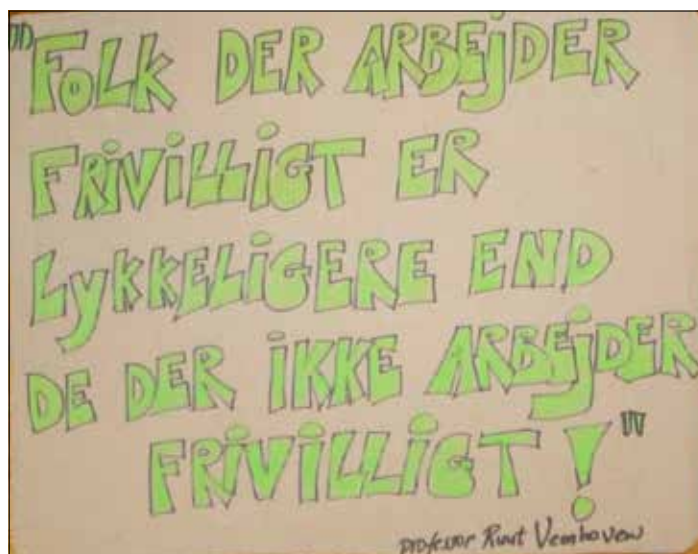 "FOLK DER ARBEJDER
FRIVILLIGT ER
LYKKELIGERE END
DE DER IKKE ARBEJDER
FRIVILLIGT!"
Professor Ruut Veenhoven